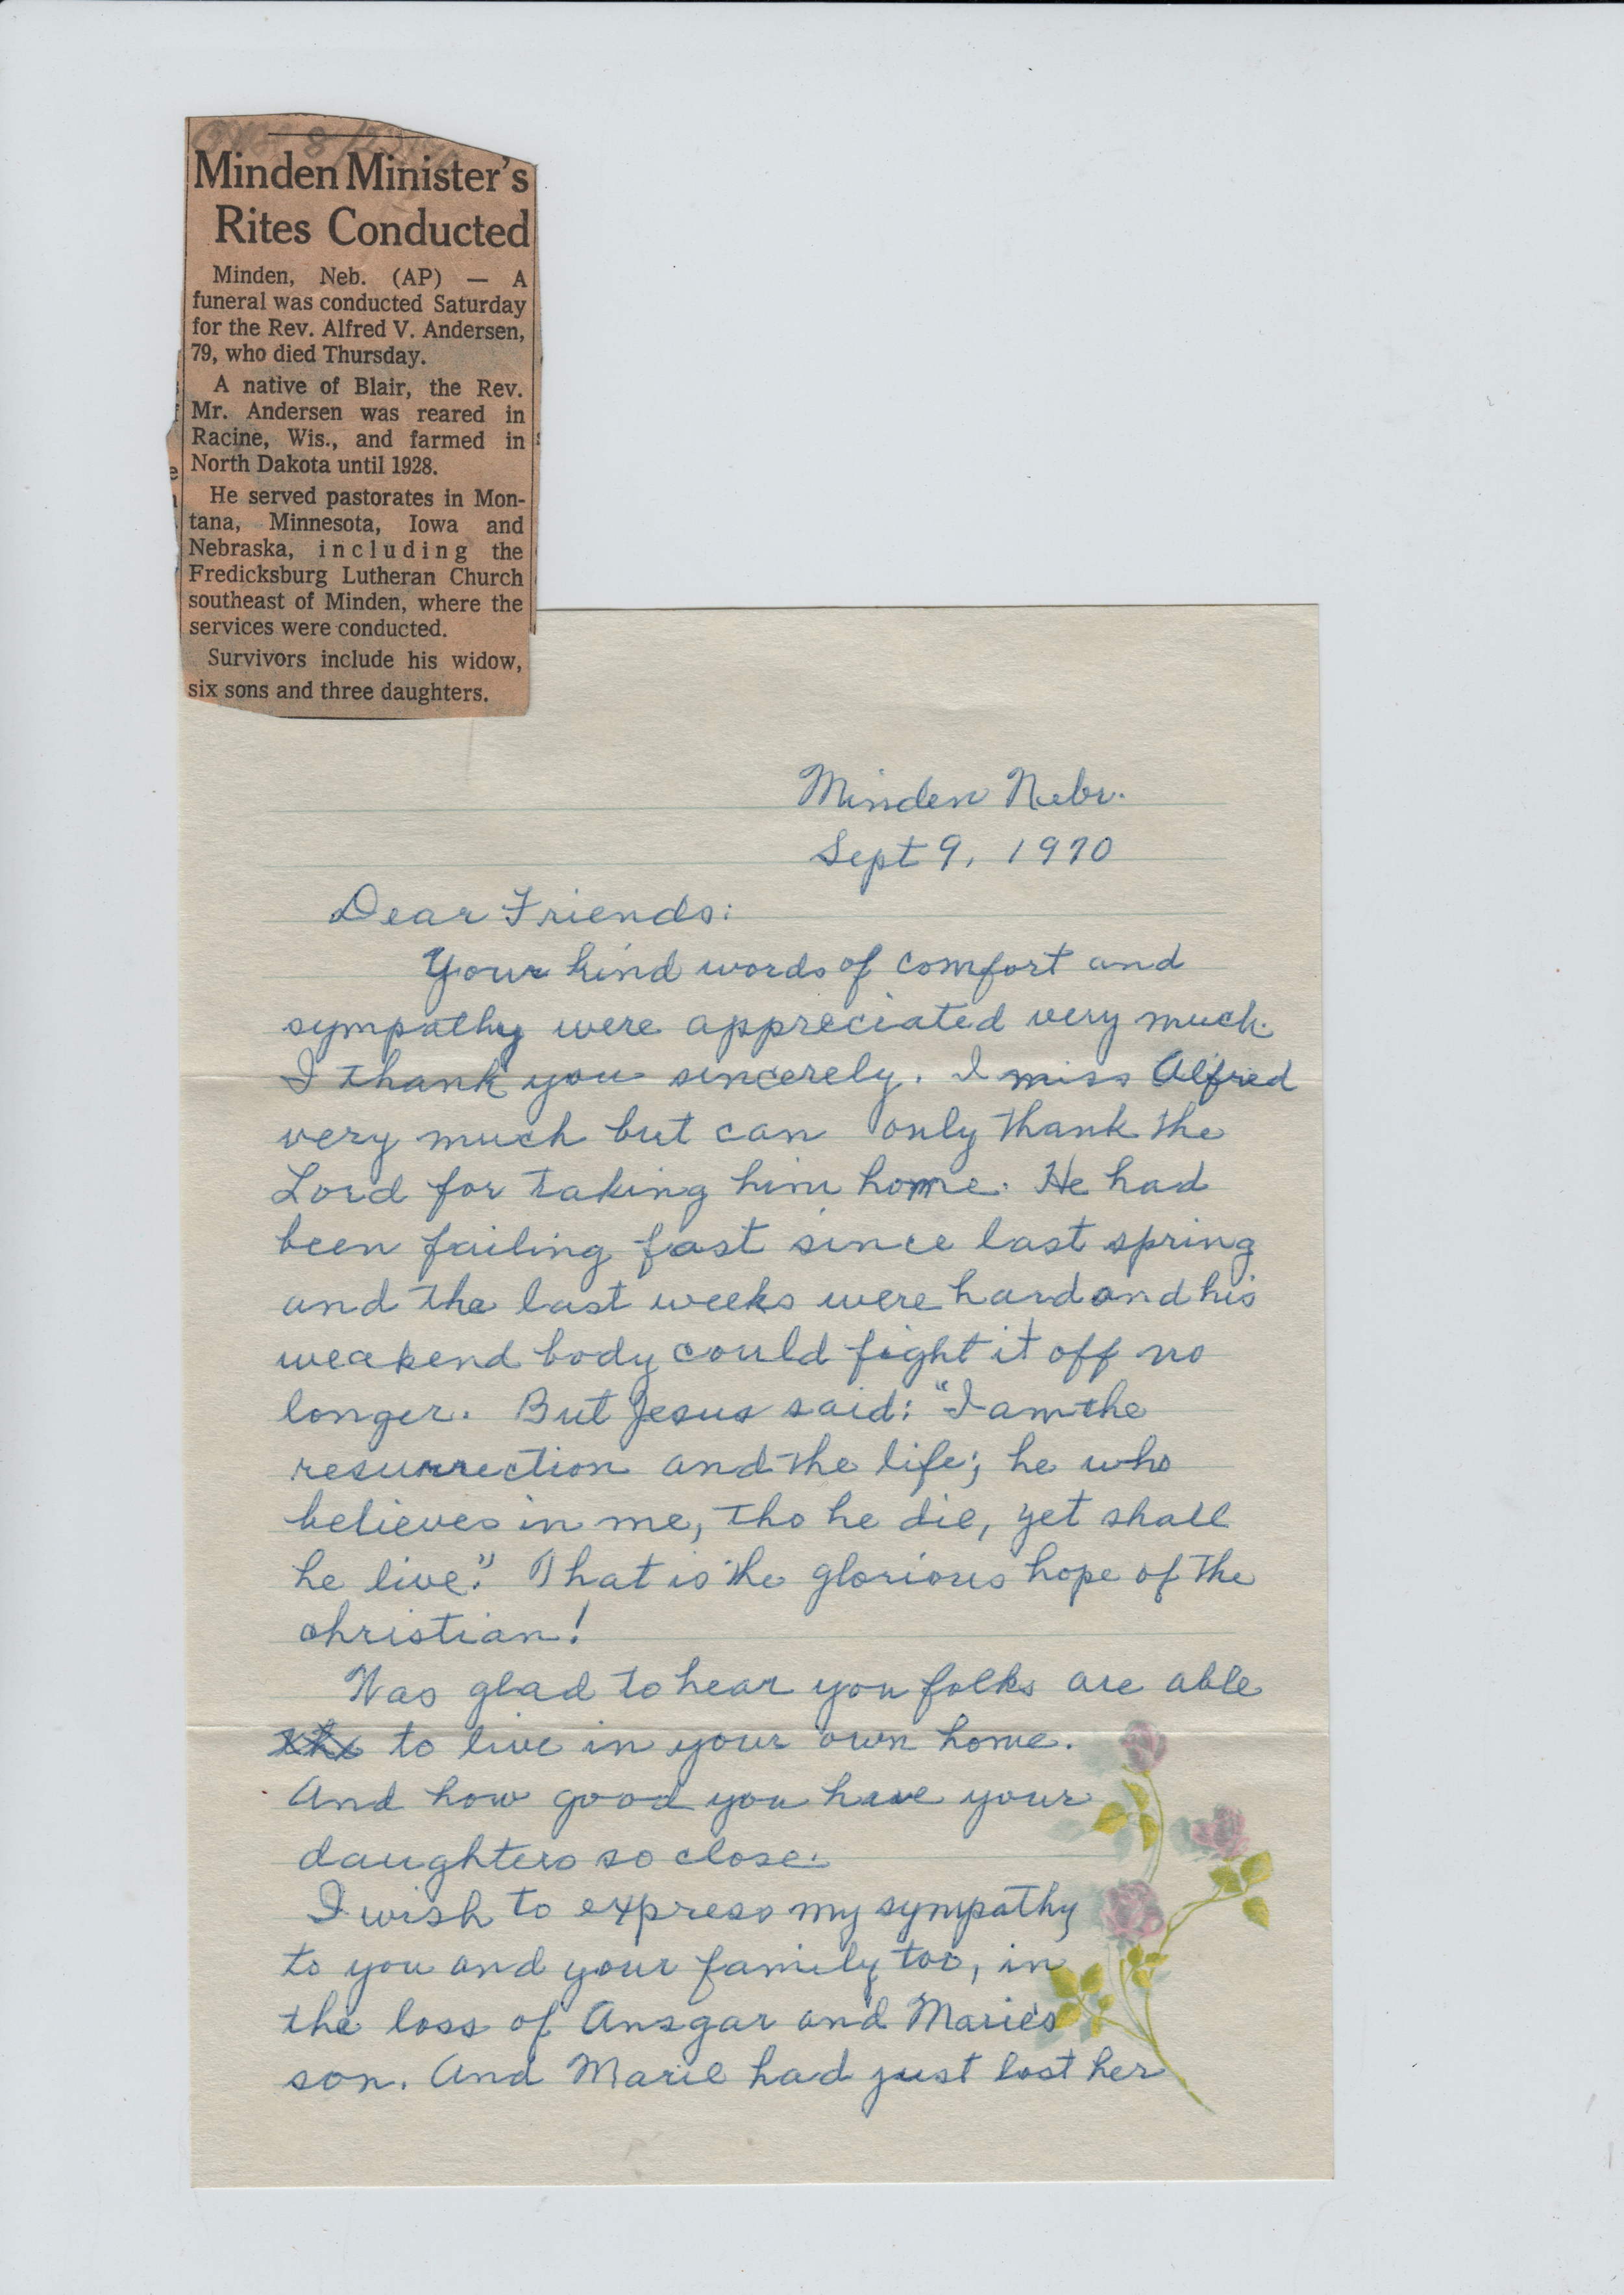 8/22
Minden Minister's
Rites Conducted
Minden, Neb. (AP) — A
funeral was conducted Saturday
for the Rev. Alfred V. Andersen,
79, who died Thursday.
A native of Blair, the Rev.
Mr. Andersen was reared in
Racine, Wis., and farmed in
North Dakota until 1928.
He served pastorates in Mon-
tana, Minnesota, Iowa and
Nebraska, including the
Fredicksburg Lutheran Church
southeast of Minden, where the
services were conducted.
Survivors include his widow,
six sons and three daughters.
Minden Nebr.
Sept 9, 1970
Dear Friends:
Your kind words of comfort and
sympathy were appreciated very much.
I thank you sincerely. I miss Alfred
very much but can only thank the
Lord for taking him home. He had
been failing fast since last spring
and the last weeks were hard and his
weakend body could fight it off no
longer. But Jesus said: "I am the
resurrection and the life; he who
believes in me, tho he die, yet shall
he live." That is the glorious hope of the
christian!
Was glad to hear you folks are able
to live in your own home.
And how good you have your
daughters so close.
I wish to express my sympathy
to you and your family too, in
the loss of Ansgar and Marie's
son. And Marie had just lost her